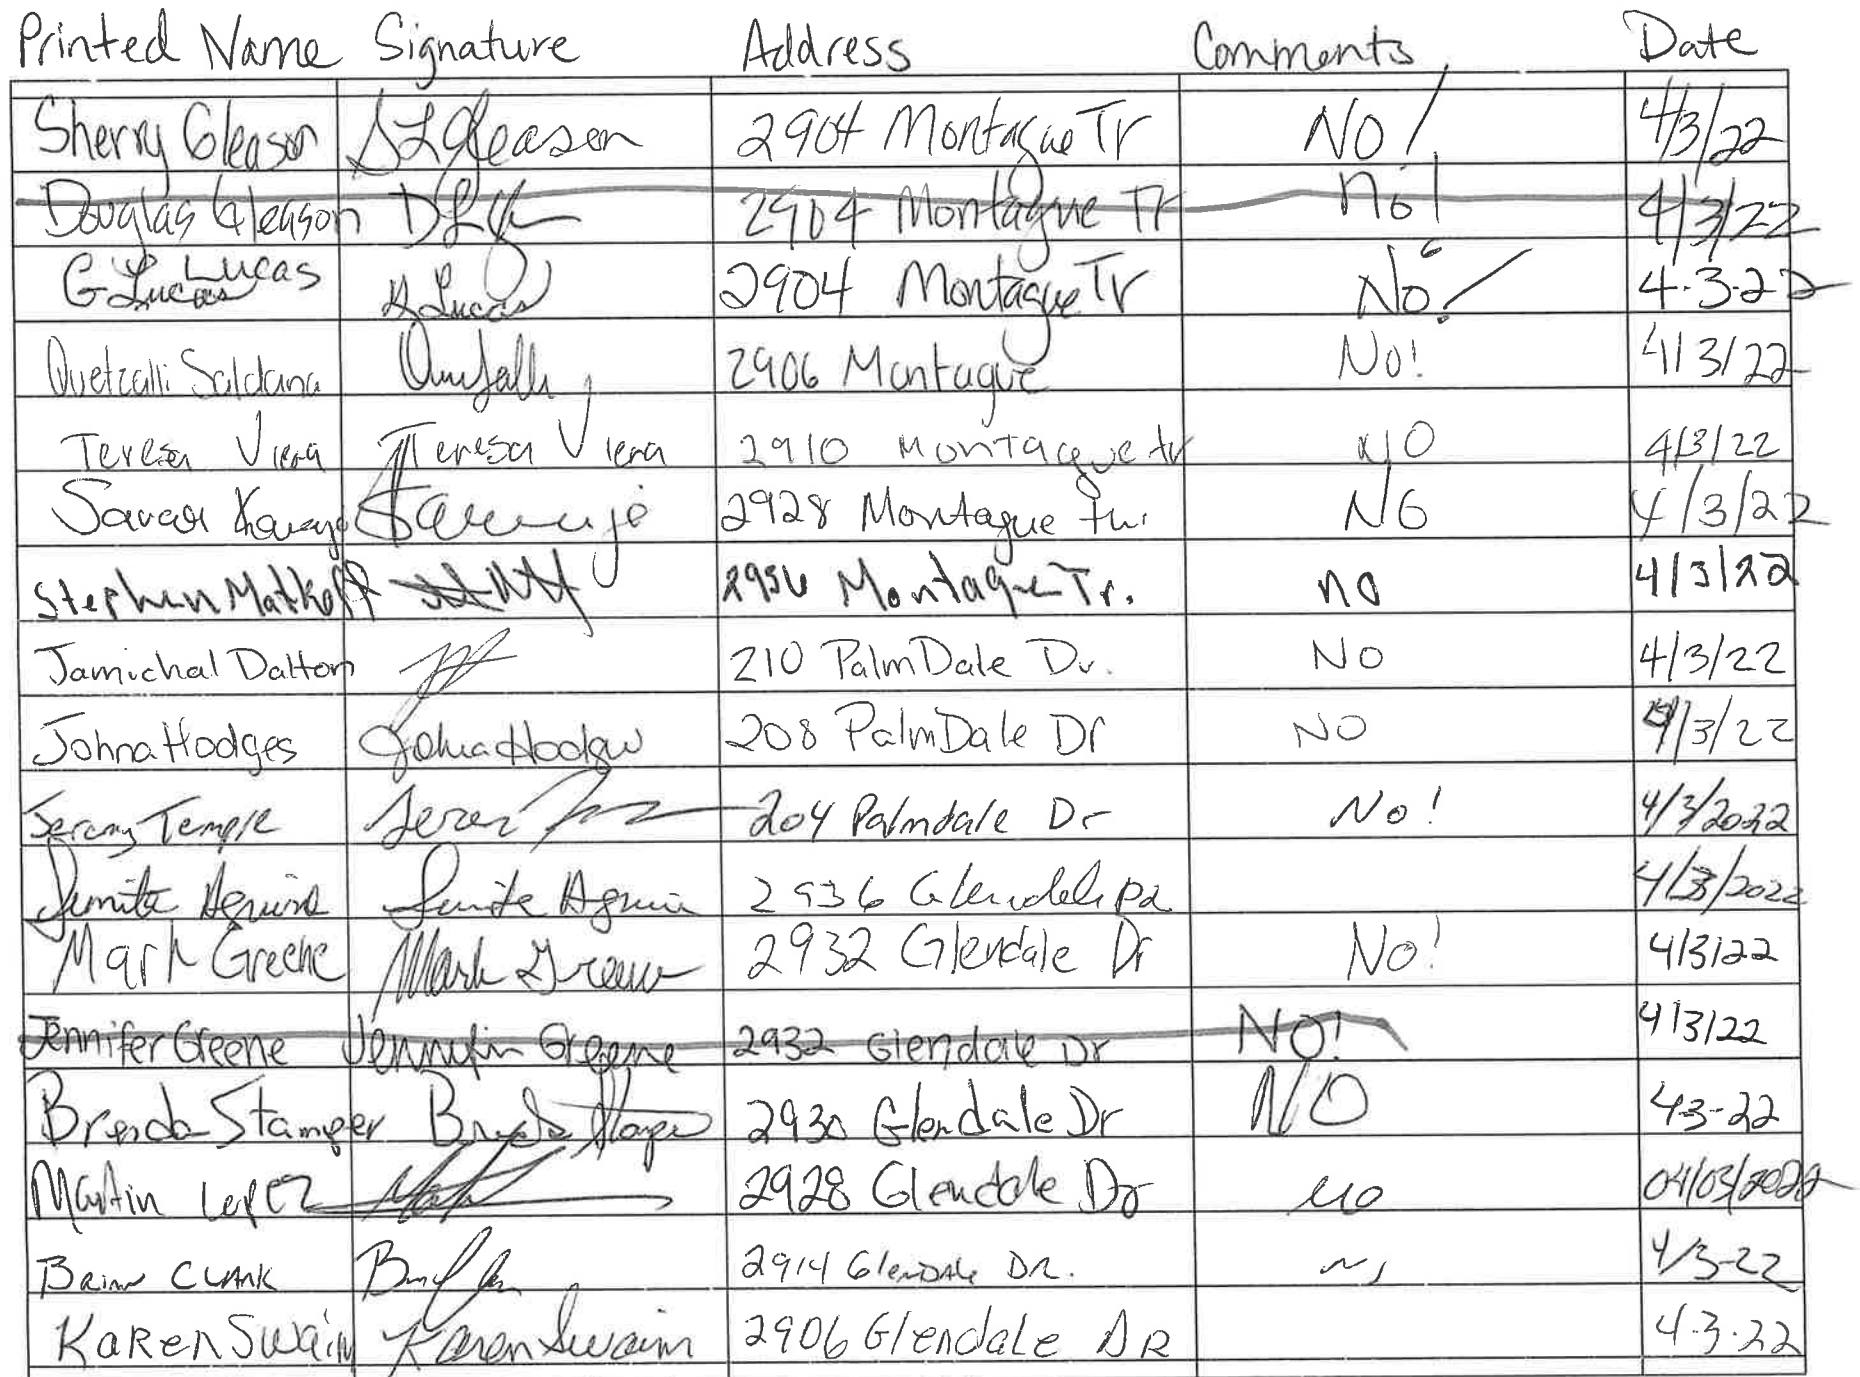 Printed Name Signature Address Comments Date
Sherry Gleason SLGleason 2904 Montague Tr NO! 4/3/22
Douglas Gleason 2904 Montague Tr No! 4/3/22
G Lucas Lucas G Lucas 2904 Montague Tr No! 4-3-22
Quetzalli Saldana 2906 Montague No! 4/3/22
Teresa Viera Teresa Viera 2910 Montague tr NO 4/3/22
2928 Montague NO 4/3/22
Stephen Matkoff Montague Tr. no 4/3/22
Jamichal Dalton 210 PalmDale Dr. NO 4/3/22
Johna Hodges Johna Hodges 208 PalmDale Dr NO 4/3/22
Jeremy Temple 204 Palmdale Dr No! 4/3/2022
2936 4/3/2022
Mark Greene Mark Greene 2932 Glendale Dr No! 4/3/22
Jennifer Greene Jennifer Greene 2932 Glendale Dr NO! 4/3/22
Brenda Stamper Brenda Stamper 2930 Glendale Dr NO 4-3-22
Martin Lopez 2928 Glendale Dr no 04/03/2022
Brian Clark 2914 Glendale DR. 4/3-22
Karen Swaim Karen Swaim 2906 Glendale DR 4-3-22